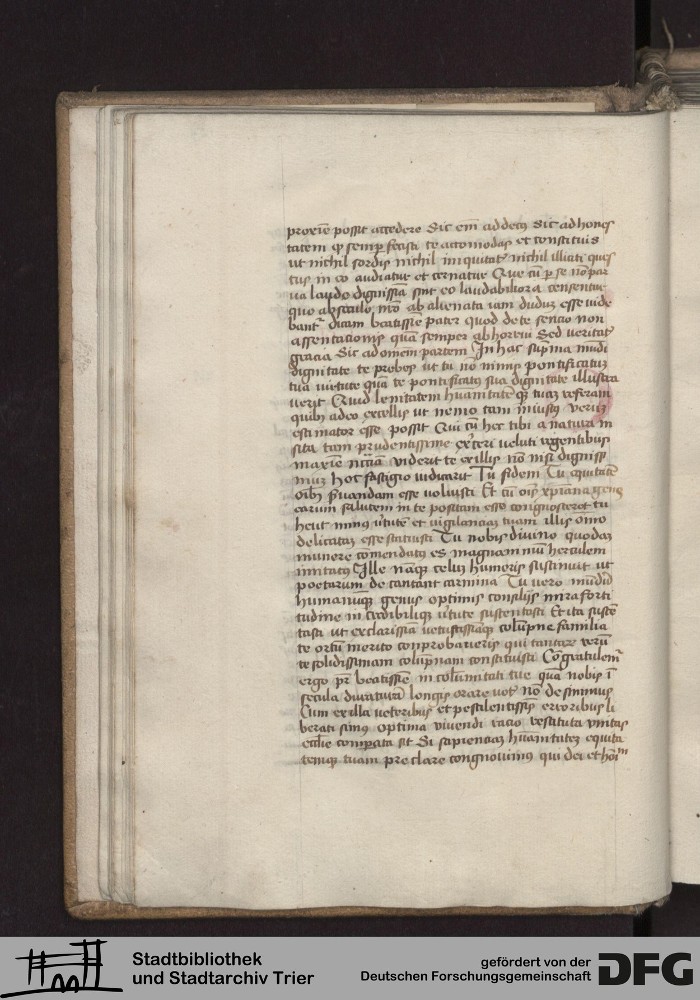 proxīe possit accedere Sic em̄ ad decꝫ Sic ad hones
tatem qꝫ semꝑ fecisti te acomodas et constituis
ut nichil sordis nichil iniquitatꝭ nichil illiciti ques
tus in eo audiatur et cernatur Que cū ꝑ se nō par
ua laude dignissīa sint eo laudabiliora censentur
quo ab seculo nrō ab alienata iam duduꝫ esse vide
bantᷣ dicam beatissīe pater quod de te sencio non
assentacionis quā semper abhorrui Sed veritatꝭ
gracia Sic ad omēm partem In hac supma mūdi
dignitate te prebes ut tu nō minus pontificatuꝫ
tua virtute quā te pontificatꝰ sua dignitate illustra
verit Quid lenitatem huanitatēqꝫ tuaꝫ referam
quibꝰ adeo excellis ut nemo tam iniustꝰ veriꝫ
estimator esse possit Qui cū hec tibi a natura in
sita tam prudentissime exˀceri veluti vigentibus
maxīe nr̄iā viderit te ex illis nō nisi dignissi
muꝫ hoc fastigio iudicarit Tu fidem Tu equitatē
oībꝰ ẜuandam esse voluisti Et cū oīs xpīana gens
earum salutem in te positam esse congnosceret tu
heut minus vˀtutē et vigilanciaꝫ tuam illis om̄o
delicataꝫ esse statuisti Tu nobis divino quodaꝫ
munere comendatꝰ es magnam nū herculem
imitatꝰ Ille nāqꝫ celuꝫ humeris sustinuit ut
poetarum decantant carmina Tu vero mūdū
humanūqꝫ genus optimis consilijs mira forti
tudine incredibiliqꝫ vˀtute sustentasti Et ita sustē
tasti ut ex clarissīa vetustissīaqꝫ colūpne familia
te ortū merito conprobaveris qui tantaꝫ rerū
te solidissimam colūpnam constituisti Cōgratulemᷣ
ergo pr̄ beatissīe in columitati tue quā nobis ī
secula duraturā longis orare votꝭ nō desinimus
Cum ex illa veteribus et pestilentissīs erroribus li
berati simus optima vivendi racio restituta vnitas
eccl̄ie comparata sit Si sapienciaꝫ hūanitateꝫ equita
temqꝫ tuam preclare congnovimus qui dei et hoīm
Stadtbibliothek
und Stadtarchiv Trier
gefördert von der
Deutschen Forschungsgemeinschaft
DFG